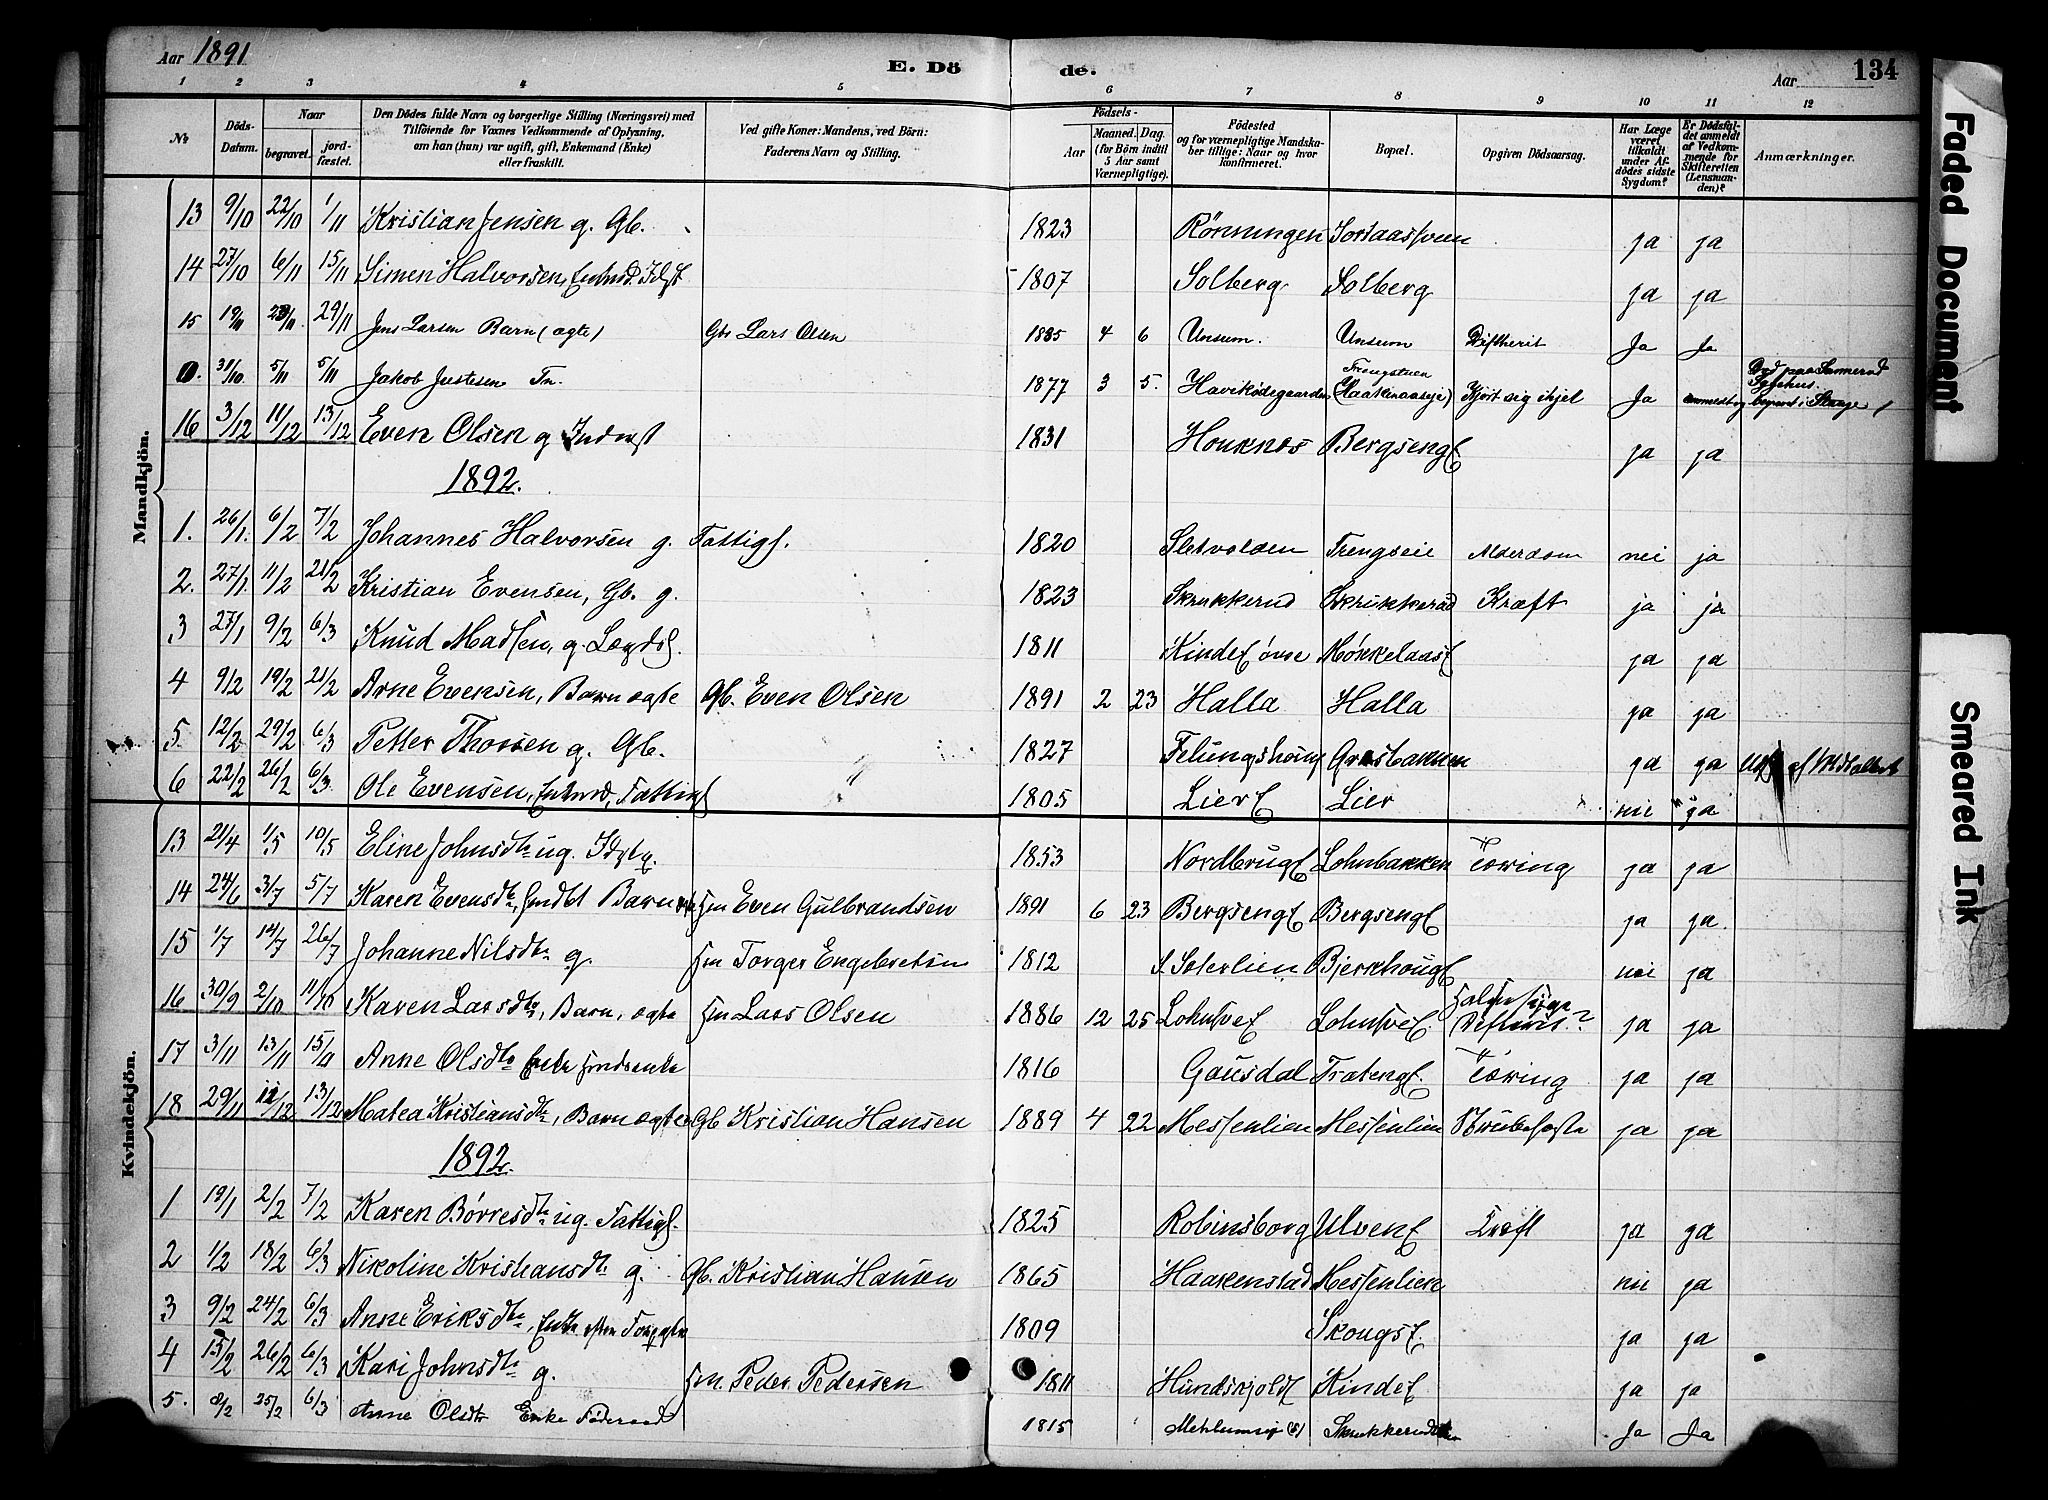 Aar 1891
E. Dö de.
Aar
134
1 2 3 4 5 6 7 8 9 10 11 12
No
Döds-Datum.
Naar
begravet.
jordfæstet.
Den Dödes fulde Navn og borgerlige Stilling (Næringsvei) med
Tilföiende for Voxnes Vedkommende af Oplysning,
om han (hun) var ugift, gift, Enkemand (Enke)
eller fraskilt.
Ved gifte Koner: Mandens, ved Börn:
Faderens Navn og Stilling.
Födsels-
Aar
Maaned. Dag.
(for Börn indtil
5 Aar samt
Værnepligtige).
Födested
og for værnepligtige Mandska-
ber tillige: Naar og hvor
konfirmeret.
Bopæl.
Opgiven Dödsaarsag.
Har Læge
været
tilkaldt
under Af-
dödes sidste
Sygdom?
Er Dödsfal-
det anmeldt
af Vedkom-
mende for
Skifteretten
(Lensman-
den)?
Anmærkninger.
Mandkjön.
13 9/10 22/10 1/11 Kristian Jensen g. Gb. 1823 Rönningen ja ja
14 27/10 6/11 15/11 Simen Halvorsen, 1807 Solberg Solberg ja ja
15 19/11 29/11 Jens Larsen Barn (ægte) Gbr Lars Olsen 1885 4 6 Unsum. Unsum Diftherit Ja Ja
0. 31/10 5/11 5/11 Jakob Justesen 1877 3 5. Kjört sig ihjel Ja
16 3/12 11/12 13/12 Even Olsen g Inderst 1831 Houknes Bergsengf ja ja
1892.
1. 26/1. 6/2 7/2 Johannes Halvorsen g. Fattigl. 1820 Sletvolden Trengseie Alderdom nei ja
2. 27/1. 11/2 21/2 Kristian Evensen, Gb. g. 1823 Skrukkerud Skrukkerud Kræft ja ja
3 27/1 9/2 6/3 Knud Madsen, g. Lægdsl. 1811 Kindef övre ja ja
4 9/2 19/2 21/2 Arne Evensen, Barn ægte Gb. Even Olsen 1891 2 23 Halla Halla ja ja
5 12/2 29/2 6/3 Petter Thorsen g. Gb. 1827 ja ja
6 22/2 26/2 6/3 Ole Evensen, Enkmd, Fattigl 1805 Lierf Lier nei ja
Kvindekjön.
13 21/4 1/5 10/5 Eline Johnsdtr ug. 1853 Nordbrugf Lohnbakken Tæring ja ja
14 24/6 3/7 5/7 Karen Evensdtr, Barn Hm Even Gulbrandsen 1891 6 23 Bergsengf Bergsengf ja ja.
15 1/7 14/7 26/7 Johanne Nilsdtr g. Hm Torger Engebretsen 1812 Bjerkhougf nei ja
16 30/9 2/10 11/10 Karen Larsdtr, Barn, ægte Hm Lars Olsen 1886 12 25 Lohnsvef Lohnsvef. Halssyge Difterit? ja ja
17 3/11 13/11 15/11 Anne Olsdtr Enke 1816 Gausdal Trætengf. Tæring ja ja
18 29/11 12/12 13/12 Matea Kristiansdtr, Barn ægte Gb Kristian Hansen 1889 4 22 Messenlien Messenlien Strubehoste ja ja
1892.
1 19/1 2/2 7/2 Karen Börresdtr ug. Fattigl. 1825 Robinsborg Ulvenf Kræft ja ja
2 1/2 18/2 6/3 Nikoline Kristiansdtr g. Gb. Kristian Hansen 1865 Haakenstad Messenlien nei ja
3 9/2 24/2 6/3 Anne Eriksdtr, Enke efter 1809 Skougsf. ja ja
4 15/2 26/2 6/3 Kari Johnsdtr g. Hm. Peder Pedersen 1811 Hundskjoldf Kindef ja ja
5. 25/2 6/3 Anne Olsdtr Enke Föderaad 1815 Ja Ja
Faded Document
Smeared Ink